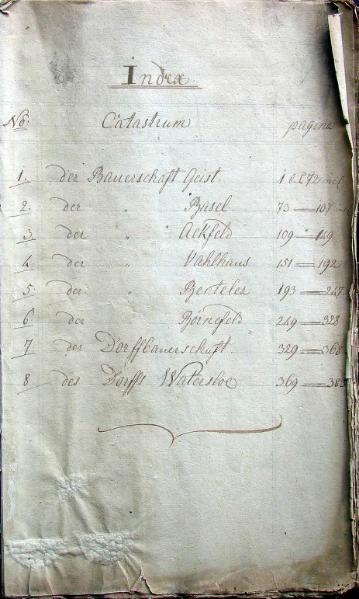 Index.
No: Catastrum pagina
1. der Bauerschaft Geist 1 a 72 incl
2. der " Büsel 73 — 107
3 der " Ackfeld 109 — 149
4 der " Vahlhaus 151 — 192
5. der " Berteler 193 — 247
6. der " Börnefeld 249 — 328
7 der Dorffbauerschaft. 329 — 368
8 des Dorffs Watersloe 369 — 38